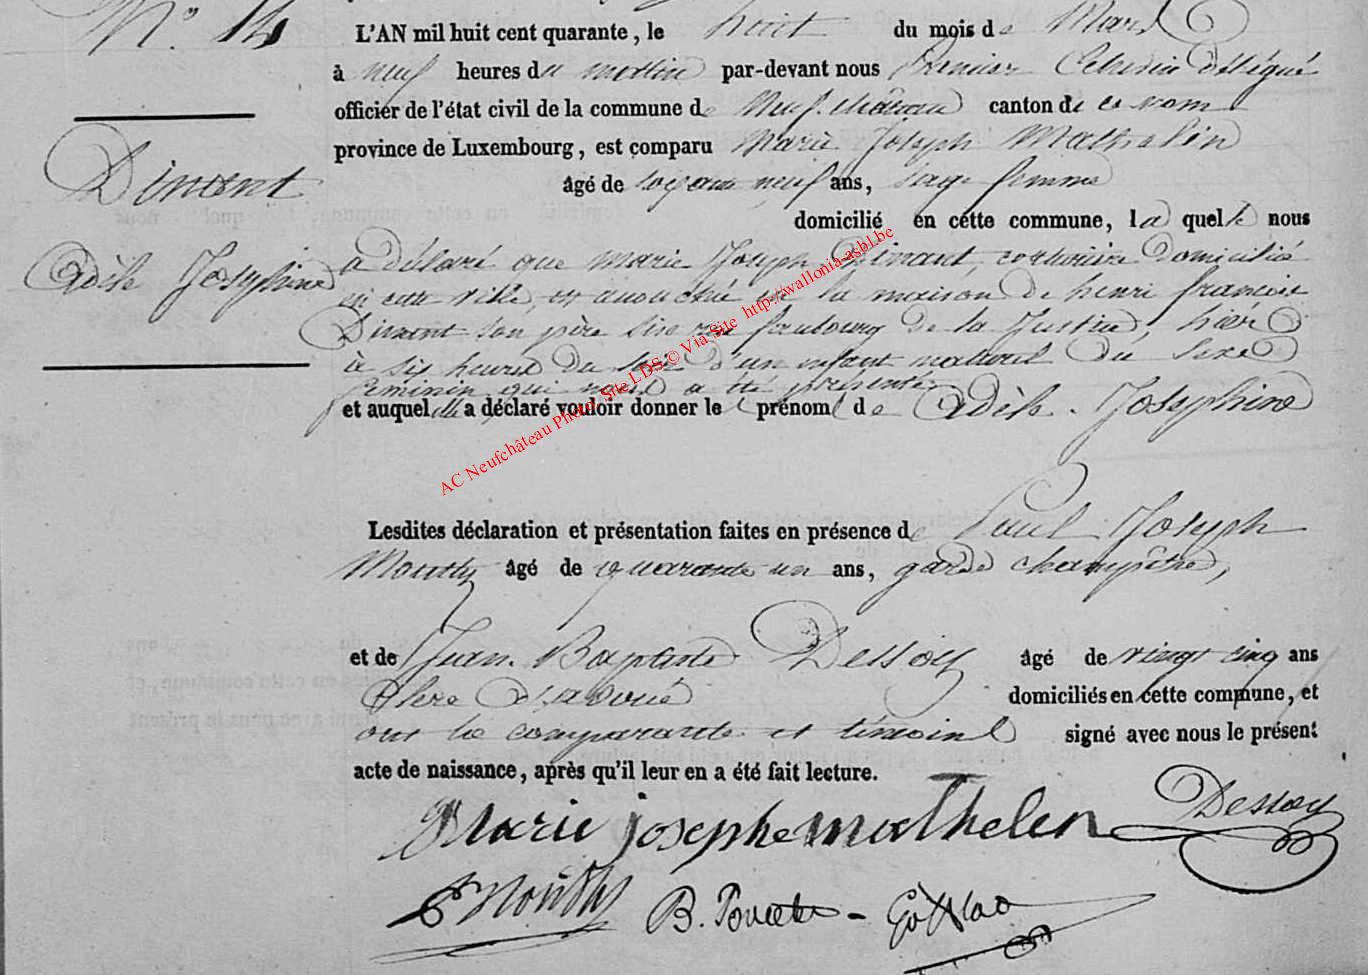 N.° 14
L'AN mil huit cent quarante, le huit du mois de Mars
à neuf heures du matin par-devant nous Echevin délégué
officier de l'état civil de la commune de Neufchâteau canton de ce nom
province de Luxembourg, est comparu Marie Joseph Mathelin
âgé de soixante neuf ans, sage femme
domicilié en cette commune, laquelle nous
Dinant
Adèle Josephine
a déclaré que Marie Joseph Dinant, couturière domiciliée
en cette ville, est accouchée en la maison de henri françois
Dinant son père sise rue faubourg de la Justice, hier
à six heures du soir d'un enfant naturel du sexe
feminin qui nous a été présenté
et auquel elle a déclaré vouloir donner le prénom de Adèle Josephine
Lesdites déclaration et présentation faites en présence de Paul Joseph
Mouthy âgé de quarante un ans, garde champêtre,
et de Jean Baptiste Dessoy âgé de vingt cinq ans
Clerc d'avoué domiciliés en cette commune, et
ont la comparante et témoins signé avec nous le présent
acte de naissance, après qu'il leur en a été fait lecture.
Marie josephe mathelin Dessoy
Mouthy B.
AC Neufchâteau Photo Site LDS © Via Site http://wallonia-asbl.be